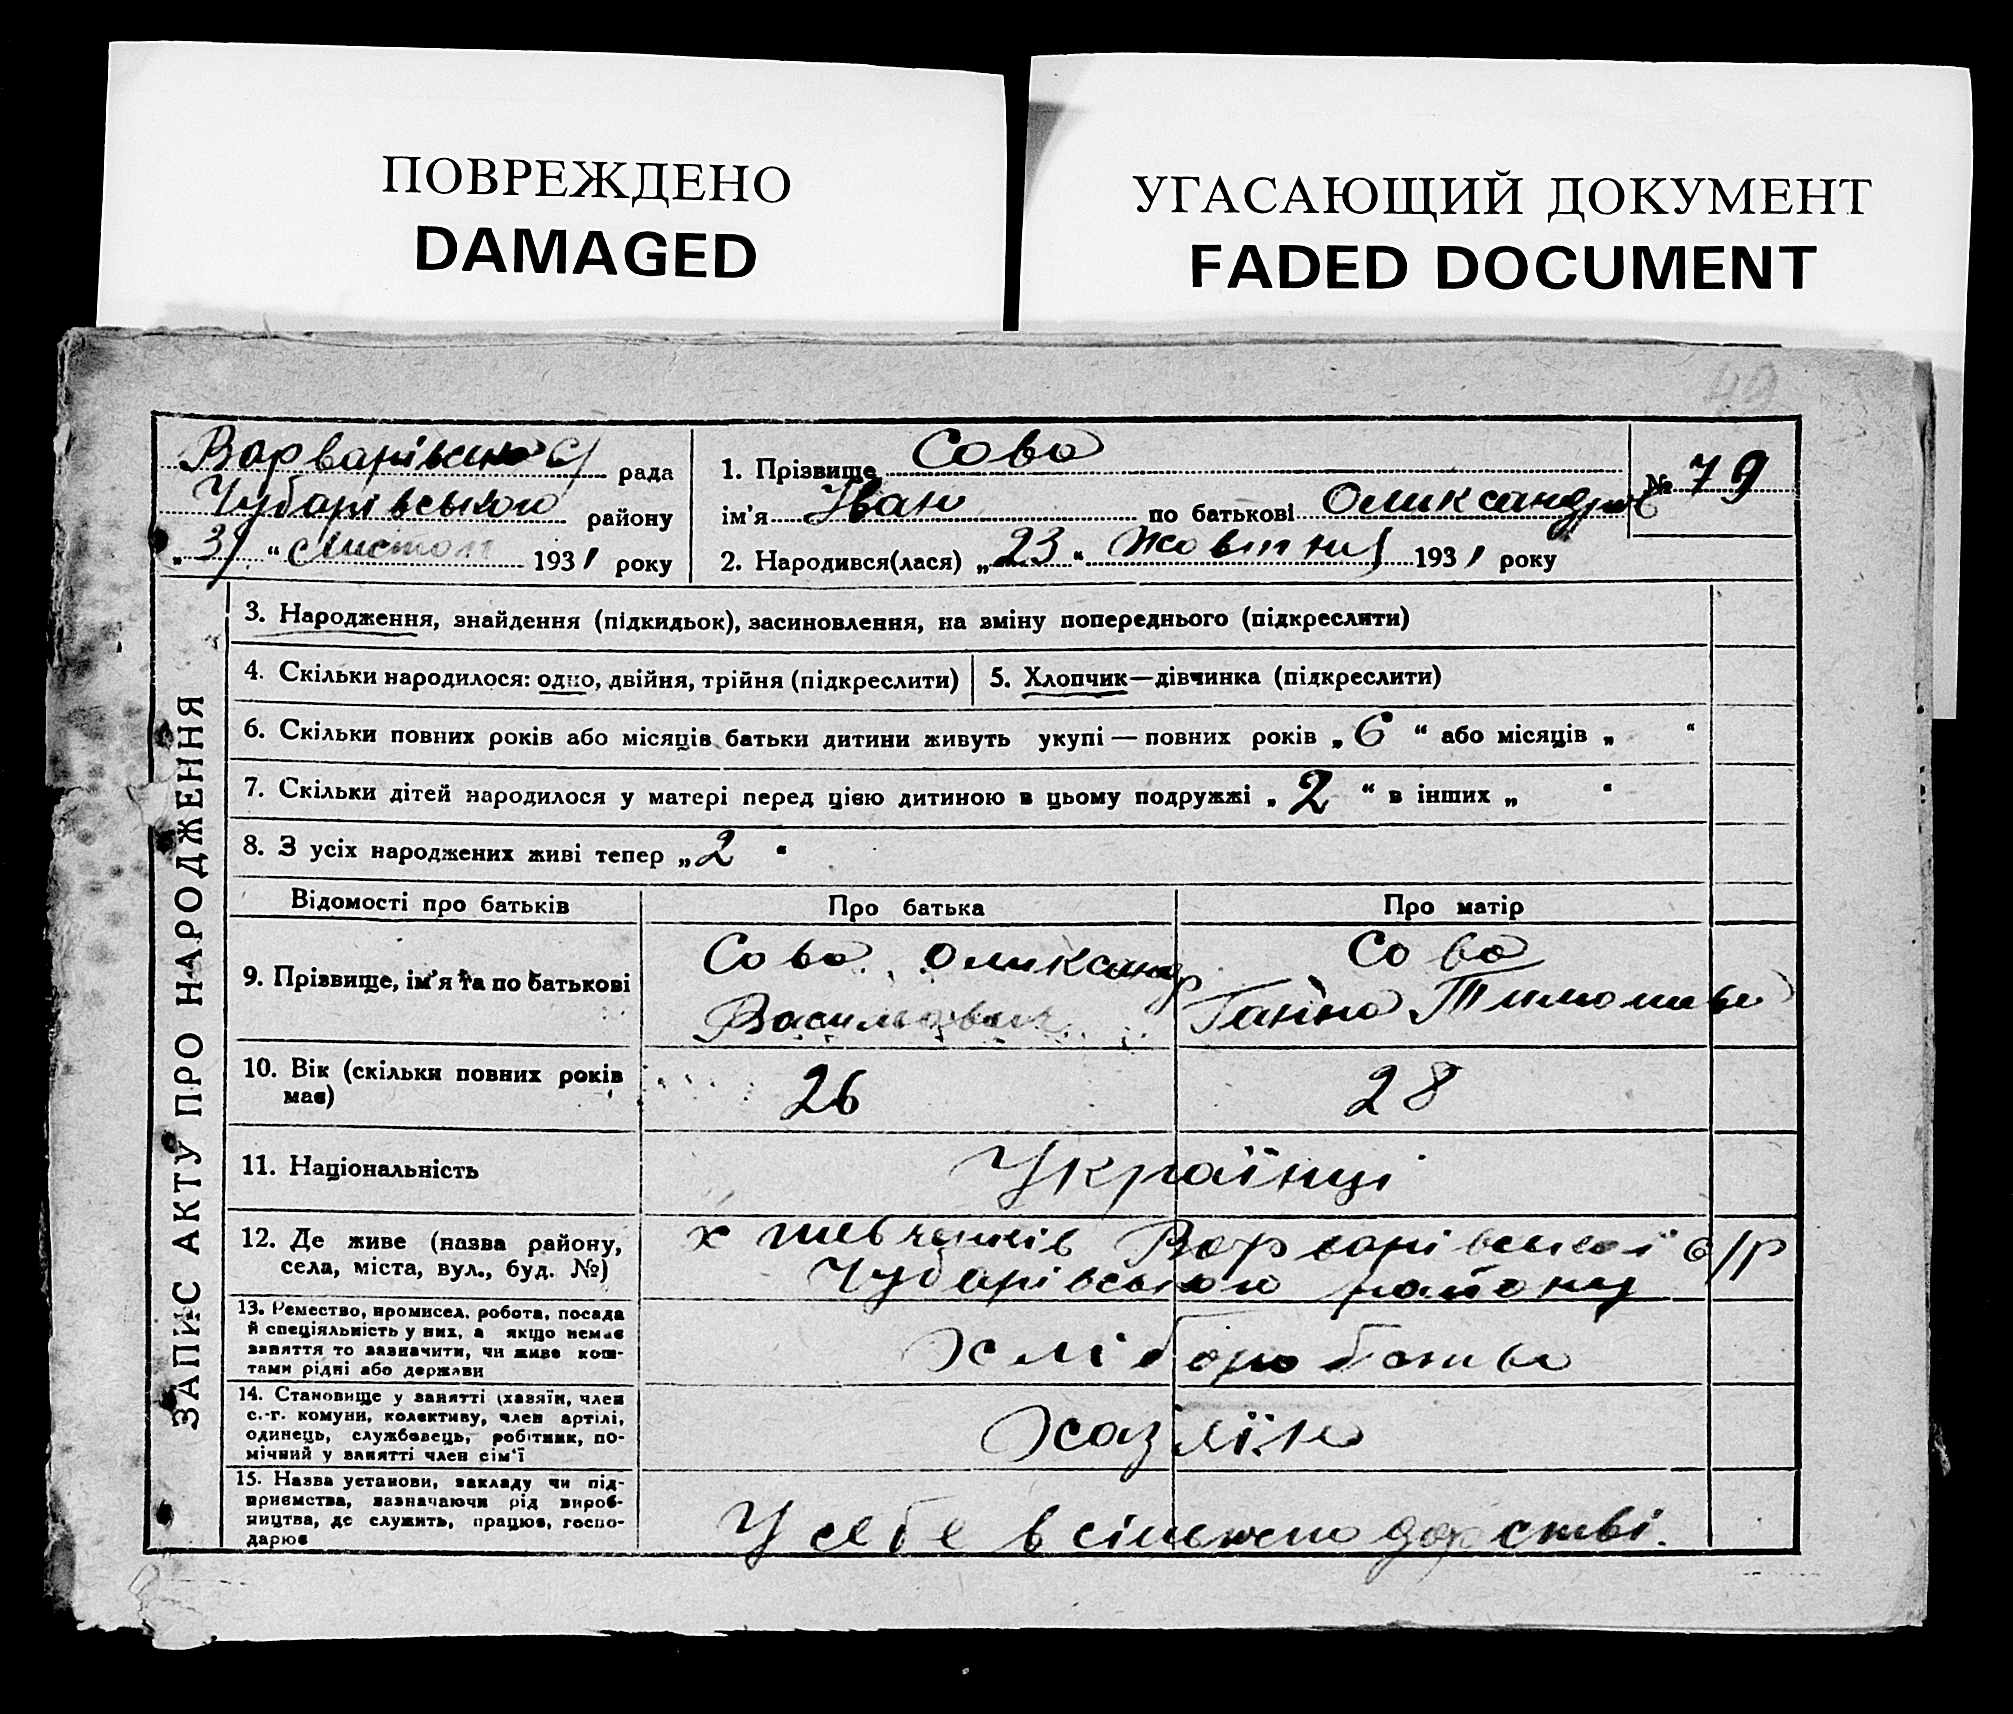 ПОВРЕЖДЕНО
DAMAGED
УГАСАЮЩИЙ ДОКУМЕНТ
FADED DOCUMENT
рада
Чубарівського району
" 31 " Листоп 1931 року
1. Прізвище Сова
ім'я Іван по батькові Олександров
2. Народився(лася) „ 23 " Жовтня 1931 року
№ 79
ЗАПИС АКТУ ПРО НАРОДЖЕННЯ
3. Народження, знайдення (підкидьок), засиновлення, на зміну попереднього (підкреслити)
4. Скільки народилося: одно, двійня, трійня (підкреслити)
5. Хлопчик—дівчинка (підкреслити)
6. Скільки повних років або місяців батьки дитини живуть укупі — повних років „ 6 “ або місяців „ “
7. Скільки дітей народилося у матері перед цією дитиною в цьому подружжі „ 2 “ в інших „ “
8. З усіх народжених живі тепер „ 2 “
Відомості про батьків
Про батька
Про матір
9. Прізвище, ім'я та по батькові
Сова Олександр
Василович
Сова
Ганна Тимошівн
10. Вік (скільки повних років
має)
26
28
11. Національність
Українці
12. Де живе (назва району,
села, міста, вул., буд. №)
х Шевченків Варварівської с/р
Чубарівського району
13. Ремество, промисел, робота, посада
й спеціяльність у них, а якщо немає
заняття то зазначити, чи живе кош-
тами рідні або держави
Хліборобство
14. Становище у занятті (хазяїн, член
с.-г. комуни, колективу, член артілі,
одинець, службовець, робітник, по-
мічний у занятті член сім'ї
Хазяїн
15. Назва установи, закладу чи під-
приємства, зазначаючи рід вироб-
ництва, де служить, працює, госпо-
дарює
У себе в сільгосподарстві.